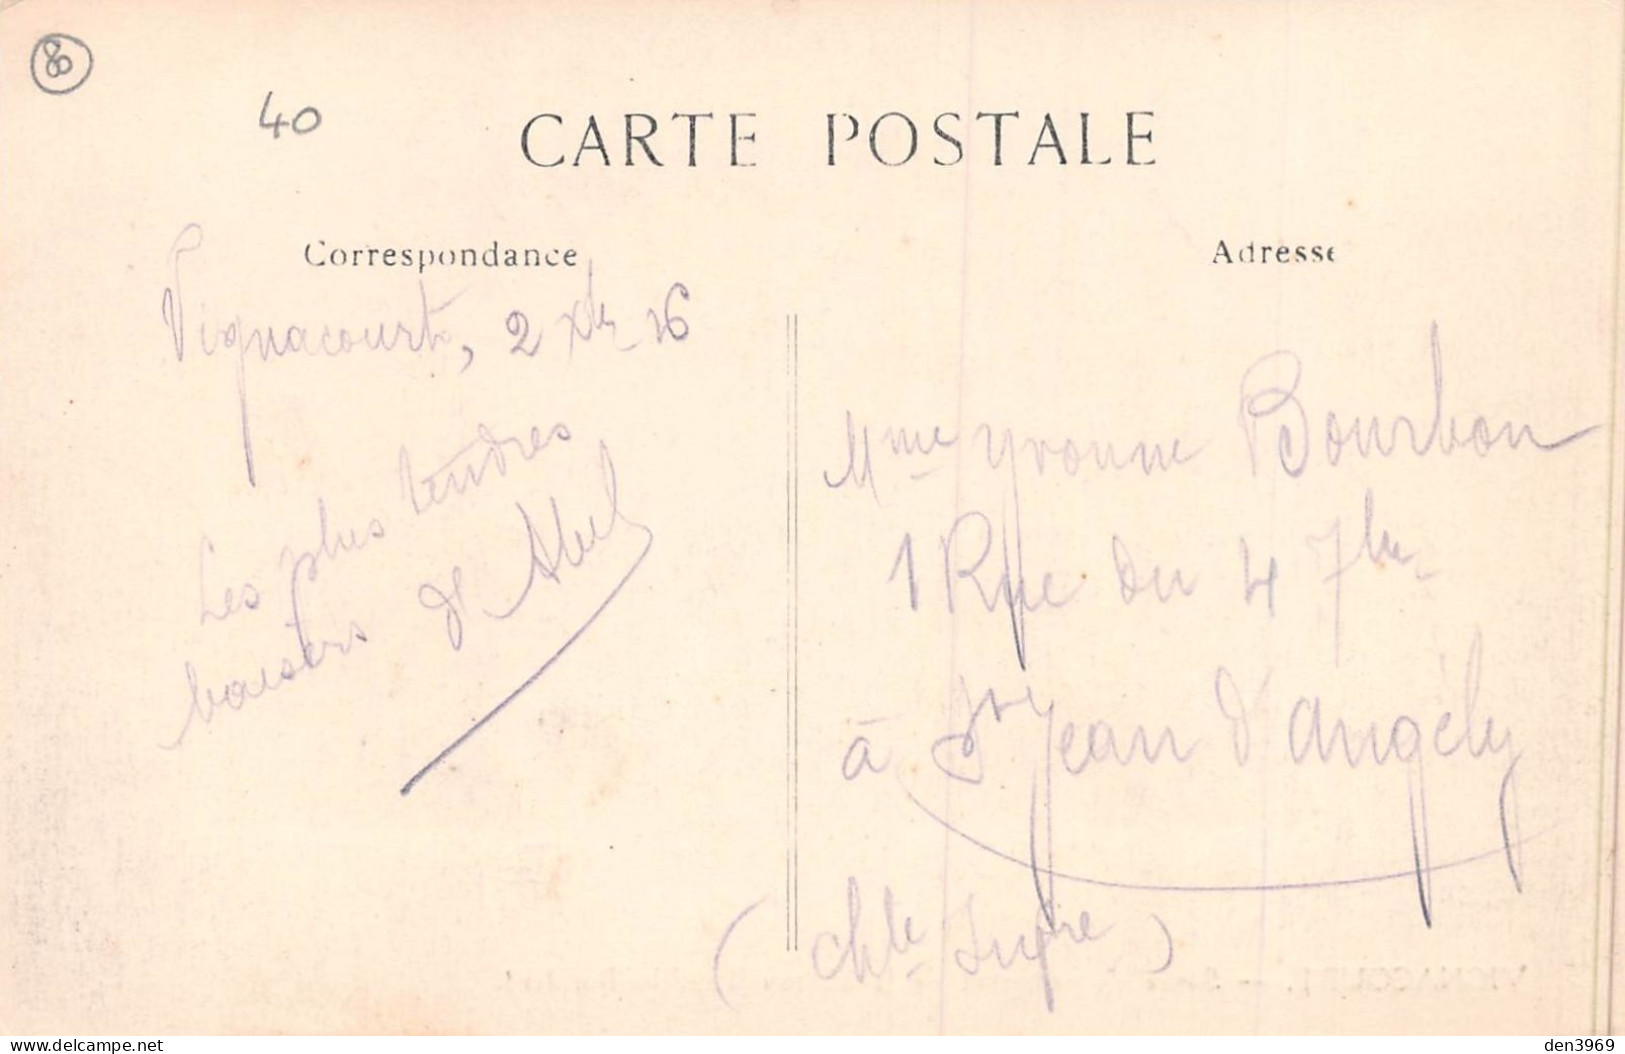 80
40
CARTE POSTALE
Correspondance
Adresse
Vignacourt, 2 Xbr 16
Les plus tendres
baisers d'Abel
Mme Yvonne Bourbon
1 Rue du 4 7bre
à St Jean d'Angély
(chte Infre)
VIGNACOURT. —
den3969